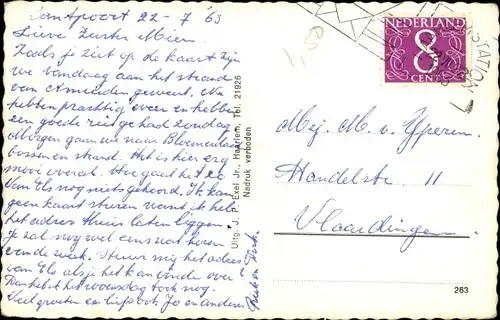 Santpoort 22-7 '63
Lieve Zuster Mien.
Zoals je ziet op de kaart zijn
we vandaag aan het strand
van IJmuiden geweest. We
hebben prachtig weer en hebben
een goede reis gehad zondag
Morgen gaan we naar Bloemendaal
bossen en strand. Het is hier erg
mooi overal. Hoe gaat het zo
Van Els nog niets gehoord. Ik kan
geen kaart sturen want ik heb
het adres thuis laten liggen.
Je zal nog wel eens wat horen
van de week. Stuur mij het adres
van Els als je het kan vinden over
Dan heb ik het woensdag toch nog.
Veel groeten en liefs ook Jo en anderen
Riek en Dirk.
Uitg. J. P. Exel Jr., Haarlem, Tel. 21926
Nadruk verboden
1,50
NEDERLAND
8
CENT
STATION
Mej. M. v. Yperen.
Mandelstr. 11
Vlaardingen.
263